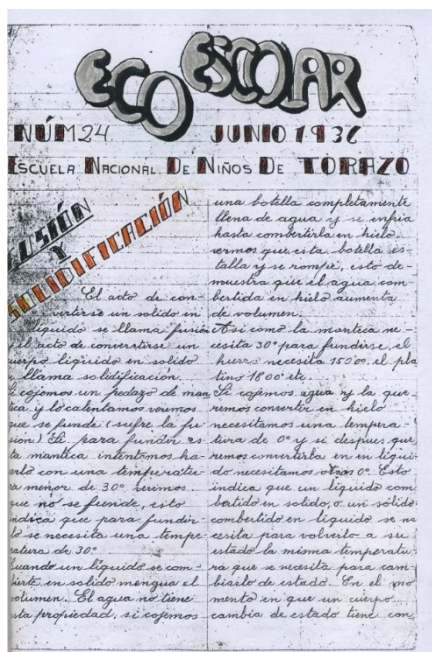 ECO ESCOLAR
NÚM 24 JUNIO 193
ESCUELA NACIONAL DE NIÑOS DE TORAZO
USIÓN
Y
SOLIDIFICACIÓN
El acto de con-
vertirse un solido en
liquido se llama fusión
y el acto de convertirse un
uerpo liquido en solido
llama solidificación.
Si cojemos un pedazo de man
tica y lo calentamos vemos
que se funde (sufre la fu
sion) Si para fundir es
ta mantica intentamos ha-
erlo con una temperatu-
ra menor de 30° vemos
que no se funde, esto
indica que para fundir-
lo se necesita una tempe
ratura de 30°
Cuando un liquido se con-
bierte en solido mengua el
volumen. El agua no tiene
sta propiedad, si cojemos
una botella completamente
llena de agua y se enfria
hasta convertirla en hielo
vemos que esta botella es-
talla y se rompe, esto de-
muestra que el agua com
bertida en hielo aumenta
de volumen.
Asi como la manteca ne-
cesita 30° para fundirse, el
hierro necesita 1500°, el pla
tino 1800° etc.
Si cojemos agua y la que-
remos convertir en hielo
necesitamos una tempera-
tura de 0° y si despues que
remos convertirla en en liqui-
do necesitamos otros 0°. Esto
indica que un liquido com
bertido en solido, o un sólido
combertido en liquido se ne
cesita para volverlo a su
estado la misma temperatu-
ra que se necesita para cam
biarlo de estado. En el mo
mento en que un cuerpo
cambia de estado tiene con